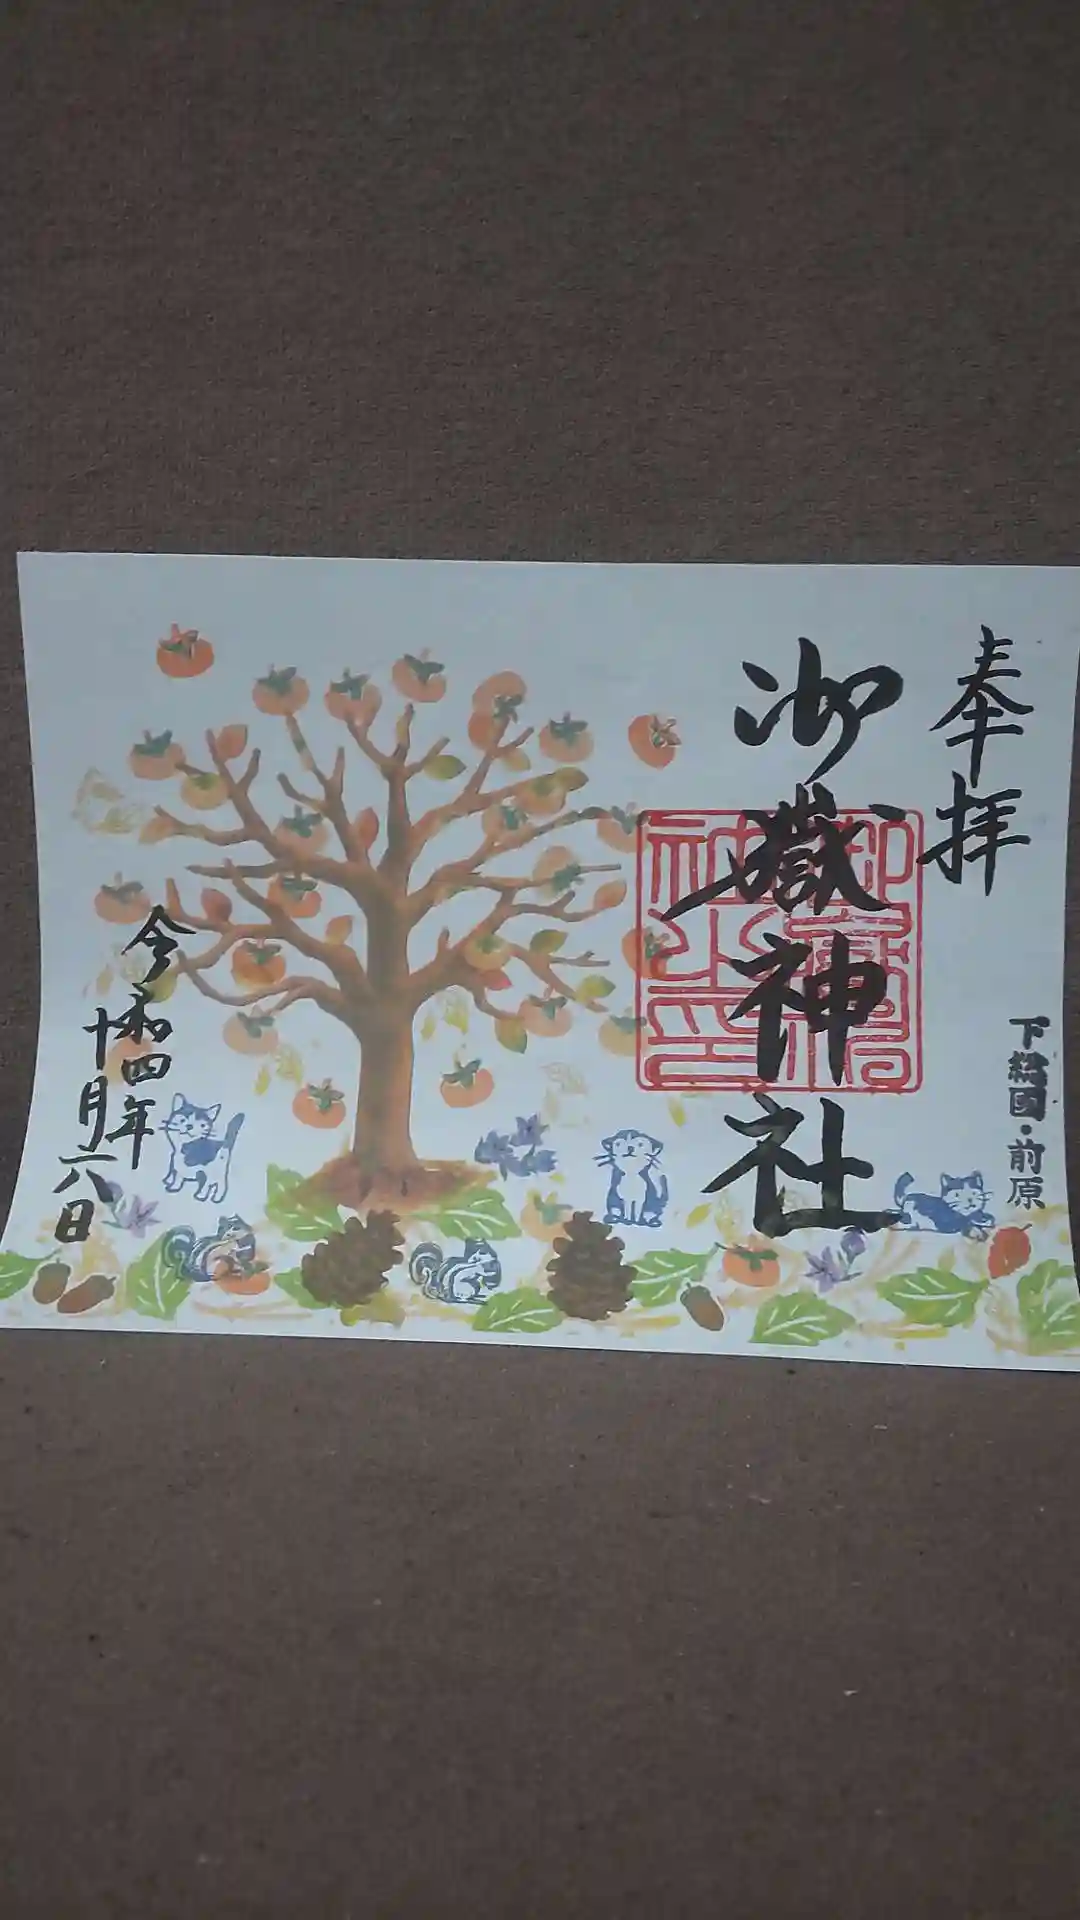 奉拝
下総國・前原
御嶽神社
御嶽神社之印
令和四年
十月一六日